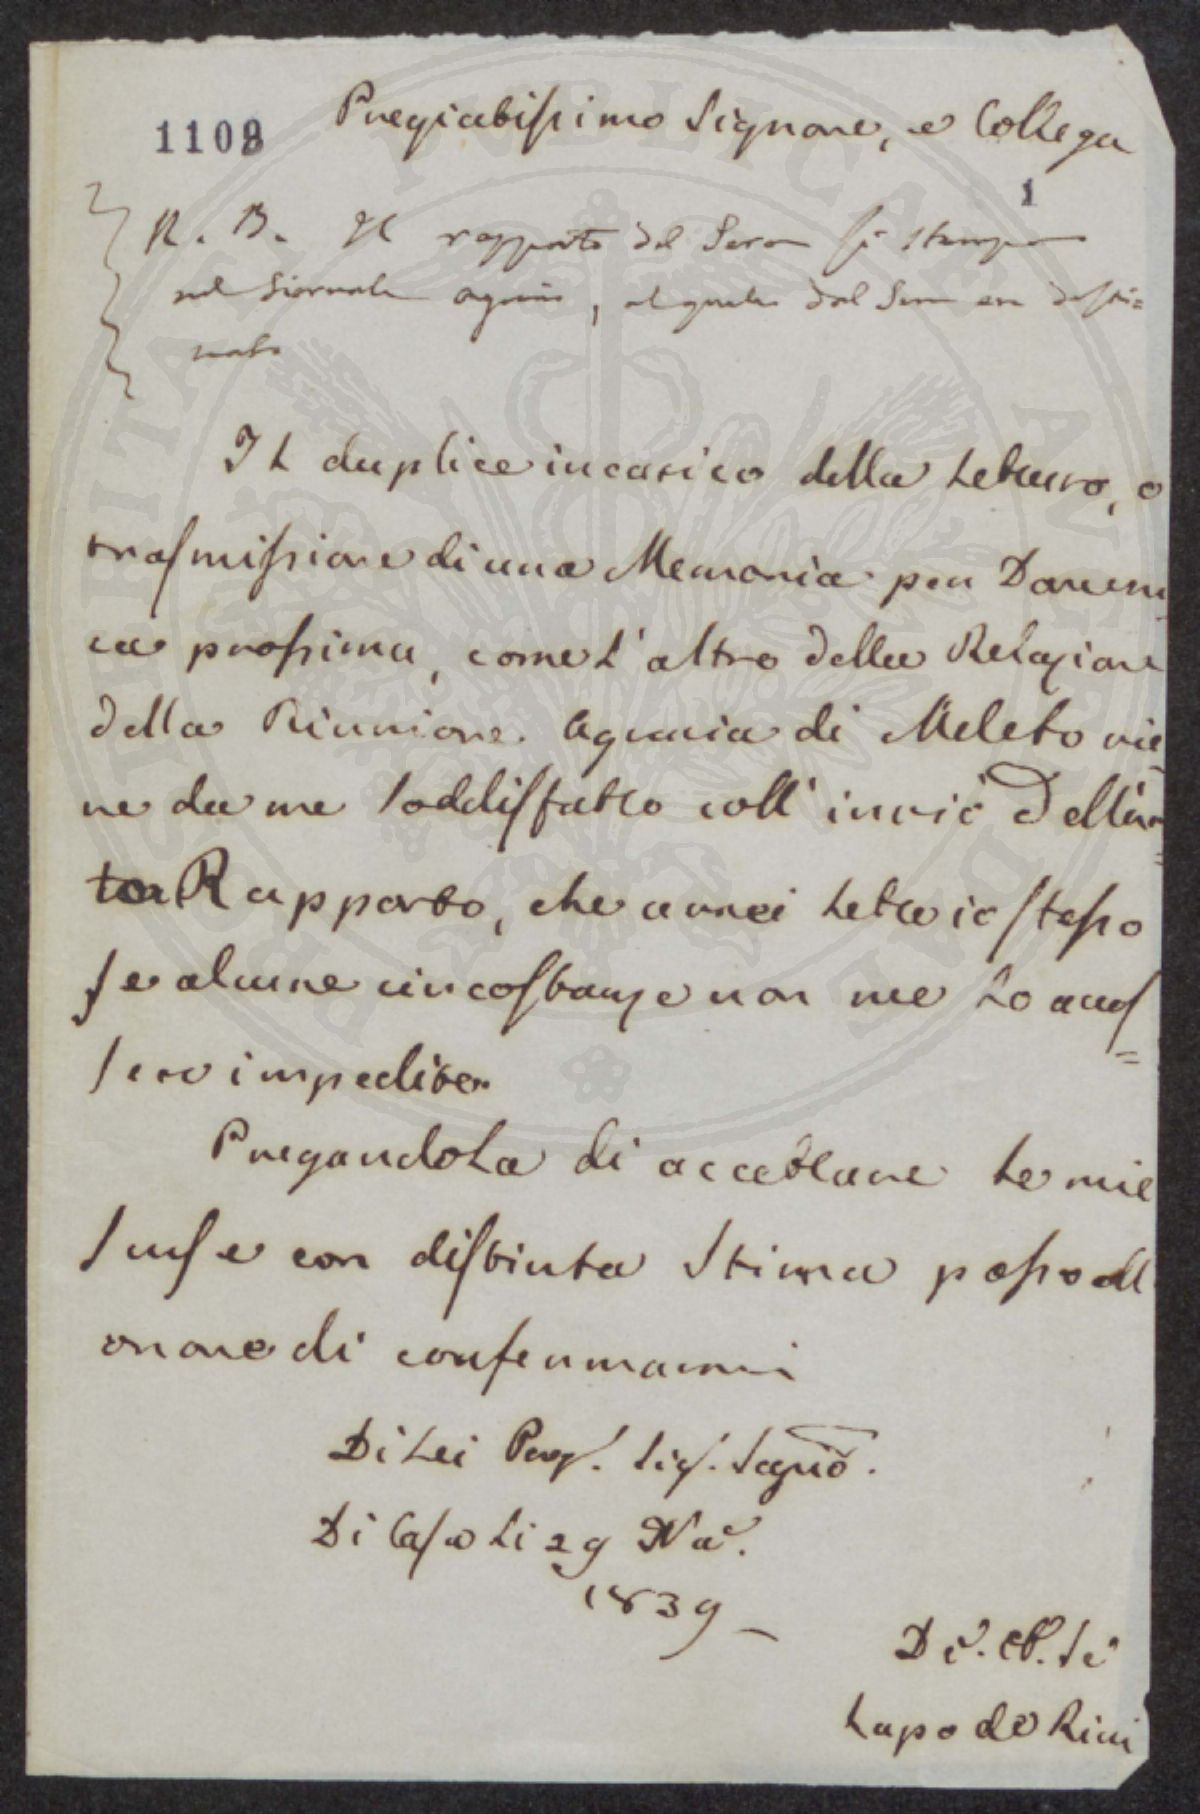 Pregiabissimo Signore, e Collega
1108
1
N. B. Il rapporto del Seren si stampa
nel Giornale agrario, al quale dal Seren era desti=
nato
Il duplice incarico della Lettura, o
trasmissione di una Memoria per Domeni
ca prossima, come l'altro della Relazione
della Riunione Agraria di Meleto vie
ne da me soddisfatto coll'invio dell'
Rapporto, che avrei letto io stesso
se alcune circostanze non me lo aves
=
sero impedito.
Pregandola di accettare le mie
scuse con distinta stima passo all
onore di confermarmi
Di Lei Preg. Sig. Segrio.
Di Casa li 29 No.
1839
Do. Ob. Se
Lapo de Ricci